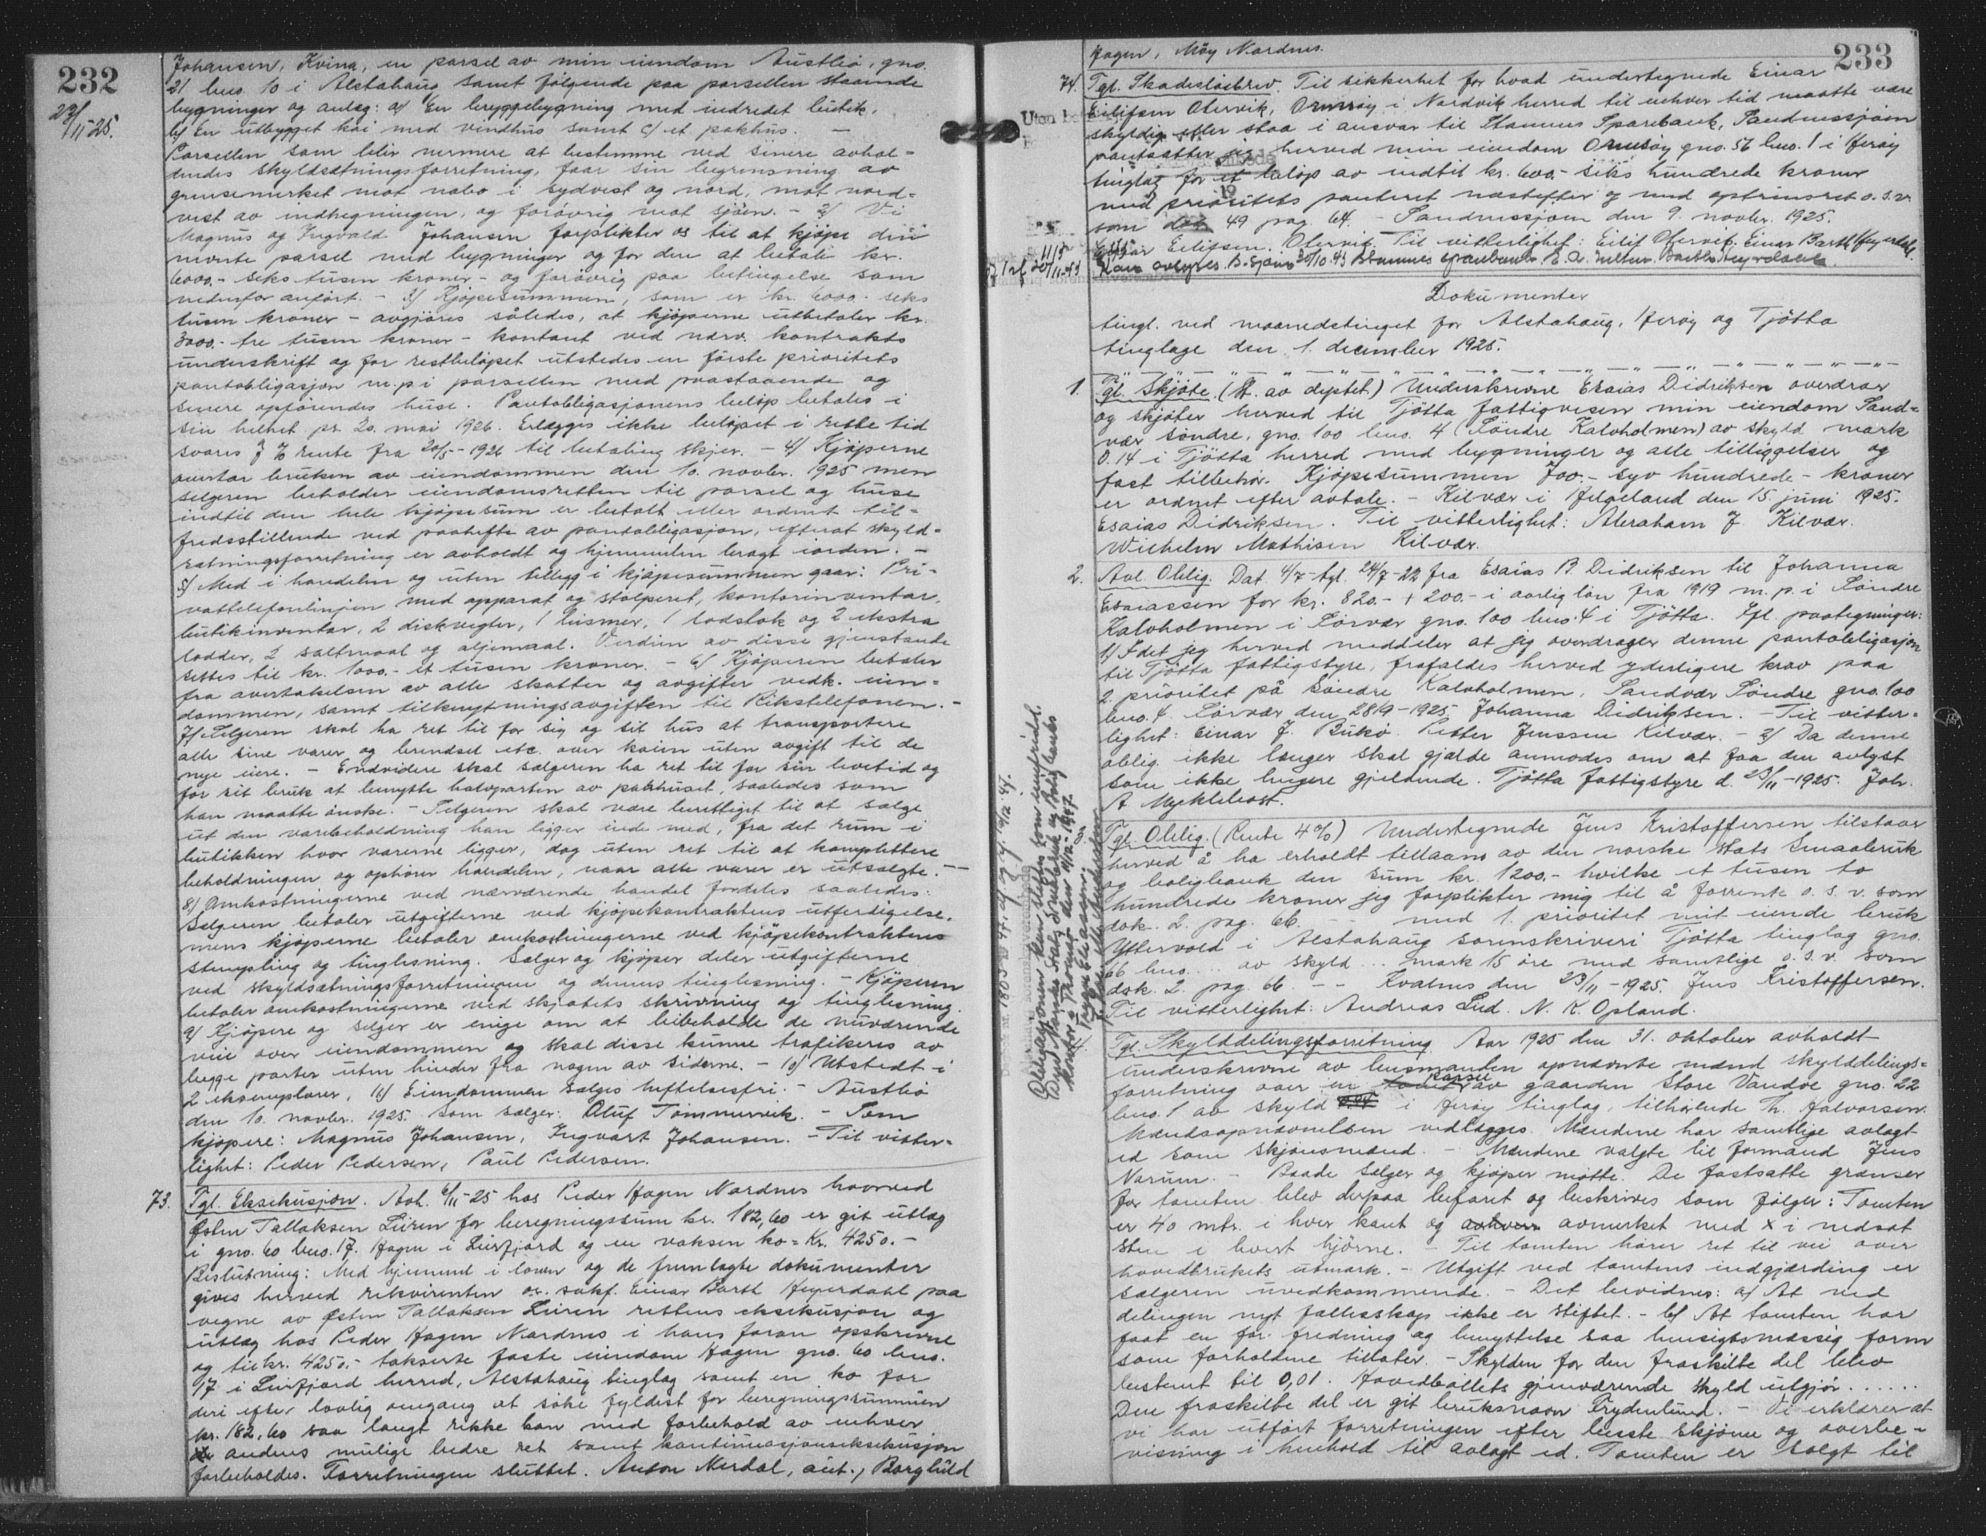 232
23/11-25.
Johansen, Kvina, en parsel av min eiendom Austbø, gno.
21 bno. 10 i Alstahaug samt følgende paa parsellen staaende
bygninger og anlæg: a) En bryggebygning med indredet butik.
b) En utbygget kai med vindhus samt c) et pakhus. —
Parsellen som blir nermere at bestemme ved senere avhol-
dendes skyldsætningsforretning, faar sin begrensning av
grensemerket mot nabo i sydvest og nord, mot nord-
vest av indhegningen, og forøvrig mot sjøen. — 2) Vi
Magnus og Ingvald Johansen forplikter os til at kjøpe den
nevnte parsel med bygninger og for den at betale kr.
6000.- seks tusen kroner - og forøvrig paa betingelse som
nedenfor anført. - 3) Kjøpesummen, som er kr. 6000.- seks
tusen kroner - avgjøres således, at kjøperne utbetaler kr.
3000.- tre tusen kroner - kontant ved nærv. kontrakts
underskrift og for restbeløpet utstedes en første prioritets
pantobligasjon m.p. i parsellen med paastaaende og
senere opførendes huse. Pantobligasjonens beløp betales i
sin helhet pr. 20. mai 1926. Erlægges ikke beløpet i rette tid
svares 7 % rente fra 20/5-1926 til betaling skjer. - 4) Kjøperne
overtar bruken av eiendommen den 10. novbr. 1925 men
selgeren beholder eiendomsretten til parsel og huse
indtil den hele kjøpesum er betalt eller ordnet til-
fredsstillende ved paahefte av pantobligasjon, efterat skyld-
sætningsforretning er avholdt og hjemmelen bragt i orden. -
5) Med i handelen og uten tillegg i kjøpesummen gaar: Pri-
vattelefonlinjen med apparat og stolperet, kontorinventar,
butikinventar, 2 diskvegter, 1 bismer, 1 lodstok og 2 ekstra
lodder, 2 saltmaal og oljemaal. Verdien av disse gjenstande
settes til kr. 1000.- et tusen kroner. - 6) Kjøperen betaler
fra overtakelsen av alle skatter og avgifter vedk. eien-
dommen, samt tilknytningsavgiften til Rikstelefonen. -
7) Selgeren skal ha ret til for sig og sit hus at transportere
alle sine varer og brendsel etc. over kaien uten avgift til de
nye eiere. - Endvidere skal sælgeren ha ret til for sin levetid og
for sit bruk at benytte halvparten av pakhuset, saaledes som
han maatte ønske. - Selgeren skal være berettiget til at sælge
ut den varebeholdning han ligger inde med, fra det rum i
butikken hvor varerne ligger, dog uten ret til at komplettere
beholdningen og ophører handelen, naar alle varer er utsolgte. —
8) Omkostningerne ved nærværende handel fordeles saaledes:
Selgeren betaler utgifterne ved kjøpekontraktens utferdigelse,
mens kjøperne betaler omkostningerne ved kjøpekontraktens
stempling og tinglesning. Selger og kjøper deler utgifterne
ved skyldsætningsforretningen og dennes tinglesning. - Kjøperen
betaler omkostningerne ved skjøtets skrivning og tinglesning.
9) Kjøpere og selger er enige om at bibeholde de nuværende
veie over eiendommen og skal disse kunne trafikeres av
begge parter uten hinder fra nogen av siderne. - 10) Utstedt i
2 eksemplarer, 11) Eiendommen sælges heftelsesfri. - Austbø
den 10. novbr. 1925. Som sælger: Oluf Tømmervik. - Som
kjøpere: Magnus Johansen, Ingvart Johansen. - Til vitter-
lighet: Peder Pedersen, Paul Pedersen.
73. Tgl. Eksekusjon. Avh. 6/11-25 hos Peder Hagen Nordnes hvorved
Østen Tallaksen Leiren for beregningssum kr. 182,60 er git utlæg
i gno. 60 bno. 17. Hagen i Leirfjord og en voksen ko = Kr. 4250.-
Beslutning: Med hjemmel i loven og de fremlagte dokumenter
gives herved rekvirenten o.r. sakf. Einar Barth Heyerdahl paa
vegne av Østen Tallaksen Leiren rettens eksekusjon og
utlæg hos Peder Hagen Nordnes i hans foran opskrevne
og til kr. 4250.- takserte faste eiendom Hagen gno. 60 bno.
17 i Leirfjord herred, Alstahaug tinglag samt en ko for
deri efter lovlig omgang at søke fyldest for beregningssummen
kr. 182,60 saa langt rekke kan med forbehold av enhver
anders mulige bedre ret samt kontinuasjonseksekusjon
forbeholdes. Forretningen sluttet. Anton Nerdal, aut., Borghild
233
Hagen, Møy Nordnes.
74. Tgl. Skadesløsbrev. Til sikkerhet for hvad undertegnede Einar
Eilifsen Olervik, Ormsøy i Nordvik herred til enhver tid maatte være
skyldig eller staa i ansvar til Stamnes Sparebank, Sandnessjøen
pantsetter jeg herved min eiendom Ormsøy gno. 56 bno. 1 i Herøy
tinglag for et beløp av indtil kr. 600.- seks hundrede kroner
med prioritets panteret næstefter og med optrinsret o.s.v.
som dok 49 pag 64. - Sandnessjøen den 9. novbr. 1925.
Einar Eilifsen. Olervik. Til vitterlighet: Eilif Olervik. Einar Barth Heyerdahl.
Kan avlyses. 30/10.43 Stamnes Sparebank
Dokumenter
tingl. ved maanedstinget for Alstahaug, Herøy og Tjøtta
tinglage den 1. december 1925.
1. Tgl. Skjøte. (St. av deptet.) Underskrevne Esaias Didriksen overdrar
og skjøter herved til Tjøtta fattigvesen min eiendom Sand-
vær søndre, gno. 100 bno. 4 (Søndre Kalvholmen) av skyld mark
0.14 i Tjøtta herred med bygninger og alle tilliggelser og
fast tilbehør. Kjøpesummen 700.- syv hundrede - kroner
er ordnet efter avtale. - Kilvær i Helgeland den 15 juni 1925.
Esaias Didriksen. Til vitterlighet: Abraham J. Kilvær.
Wilhelm Mathisen Kilvær.
2. Avl. Oblig. Dat. 4/7 - tgl. 24/7-22 fra Esaias B Didriksen til Johanna
Esaiassen for kr. 820.- + 200.- i aarlig løn fra 1919 m.p. i Søndre
Kalvholmen i Sørvær gno. 100 bno. 4 i Tjøtta. Tgl. paategninger:
1) Idet jeg herved meddeler at jeg overdrager denne pantobligasjon
til Tjøtta fattigstyre, frafaldes herved yderligere krav paa
2 prioritet på Søndre Kalvholmen, Sandvær Søndre gno. 100
bno. 4. Sørvær den 28/9-1925 Johanna Didriksen. - Til vitter-
lighet: Einar J. Bukø. Petter Jenssen Kilvær. - 2) Da denne
oblig. ikke længer skal gjælde anmodes om at faa den avlyst
som ikke lengere gjeldende. Tjøtta fattigstyre d. 23/11-1925. Joh.
A Myklebost.
Tgl. Oblig. (Rente 4 %) Undertegnede Jens Kristoffersen tilstaar
herved å ha erholdt tillaans av den norske stats Smaabruk
og boligbank den sum kr. 1200.- hvilke et tusen to
hundrede kroner jeg forplikter mig til å forrente o.s.v. som
dok. 2. pag. 66. - - med 1. prioritet mit eiende bruk
Yttervold i Alstahaug sorenskriveri Tjøtta tinglag gno.
66 bno. ... av skyld ... mark 15 øre med samtlige o.s.v. som
dok. 2. pag. 66. - - Kvalnes den 23/11-1925. Jens Kristoffersen.
Til vitterlighet: Andreas Lud. N. K. Opland.
Obligasjonen kan slettes som innfridd.
4. Tgl. Skylddelingsforretning. Aar 1925 den 31. oktober avholdt
underskrevne av lensmanden opnævnte mænd skylddelings-
forretning over en parsel av gaarden Store Vandve gno. 22
bno. 1 av skyld i Herøy tinglag, tilhørende H. Halvorsen.
Mændsopnævnelsen vedlægges. Mændene har samtlige avlagt
ed som skjønsmænd. - Mændene valgte til formand Jens
Norum. - Baade selger og kjøper møtte. De fastsatte grænser
for tomten blev derpaa befaret og beskrives som følger: Tomten
er 40 mtr. i hver kant og avmerket med x i nedsat
sten i hvert hjørne. - Til tomten hører ret til vei over
hovedbrukets utmark. - Utgift ved tomtens indgjærding er
sælgeren uvedkommende. - Det bevidnes: a) At ved
delingen nyt fællesskap ikke er stiftet. - b) At tomten har
faat en for fredning og benyttelse saa hensigtsmæssig form
som forholdene tillater. - Skylden for den fraskilte del blev
bestemt til 0,01. Hovedbøllets gjenværende skyld utgjør ......
Den fraskilte del er git bruksnavn Frydenlund. - Vi erklærer at
vi har utført forretningen efter beste skjønn og overbe-
visning i henhold til avlagt ed. Tomten er solgt til